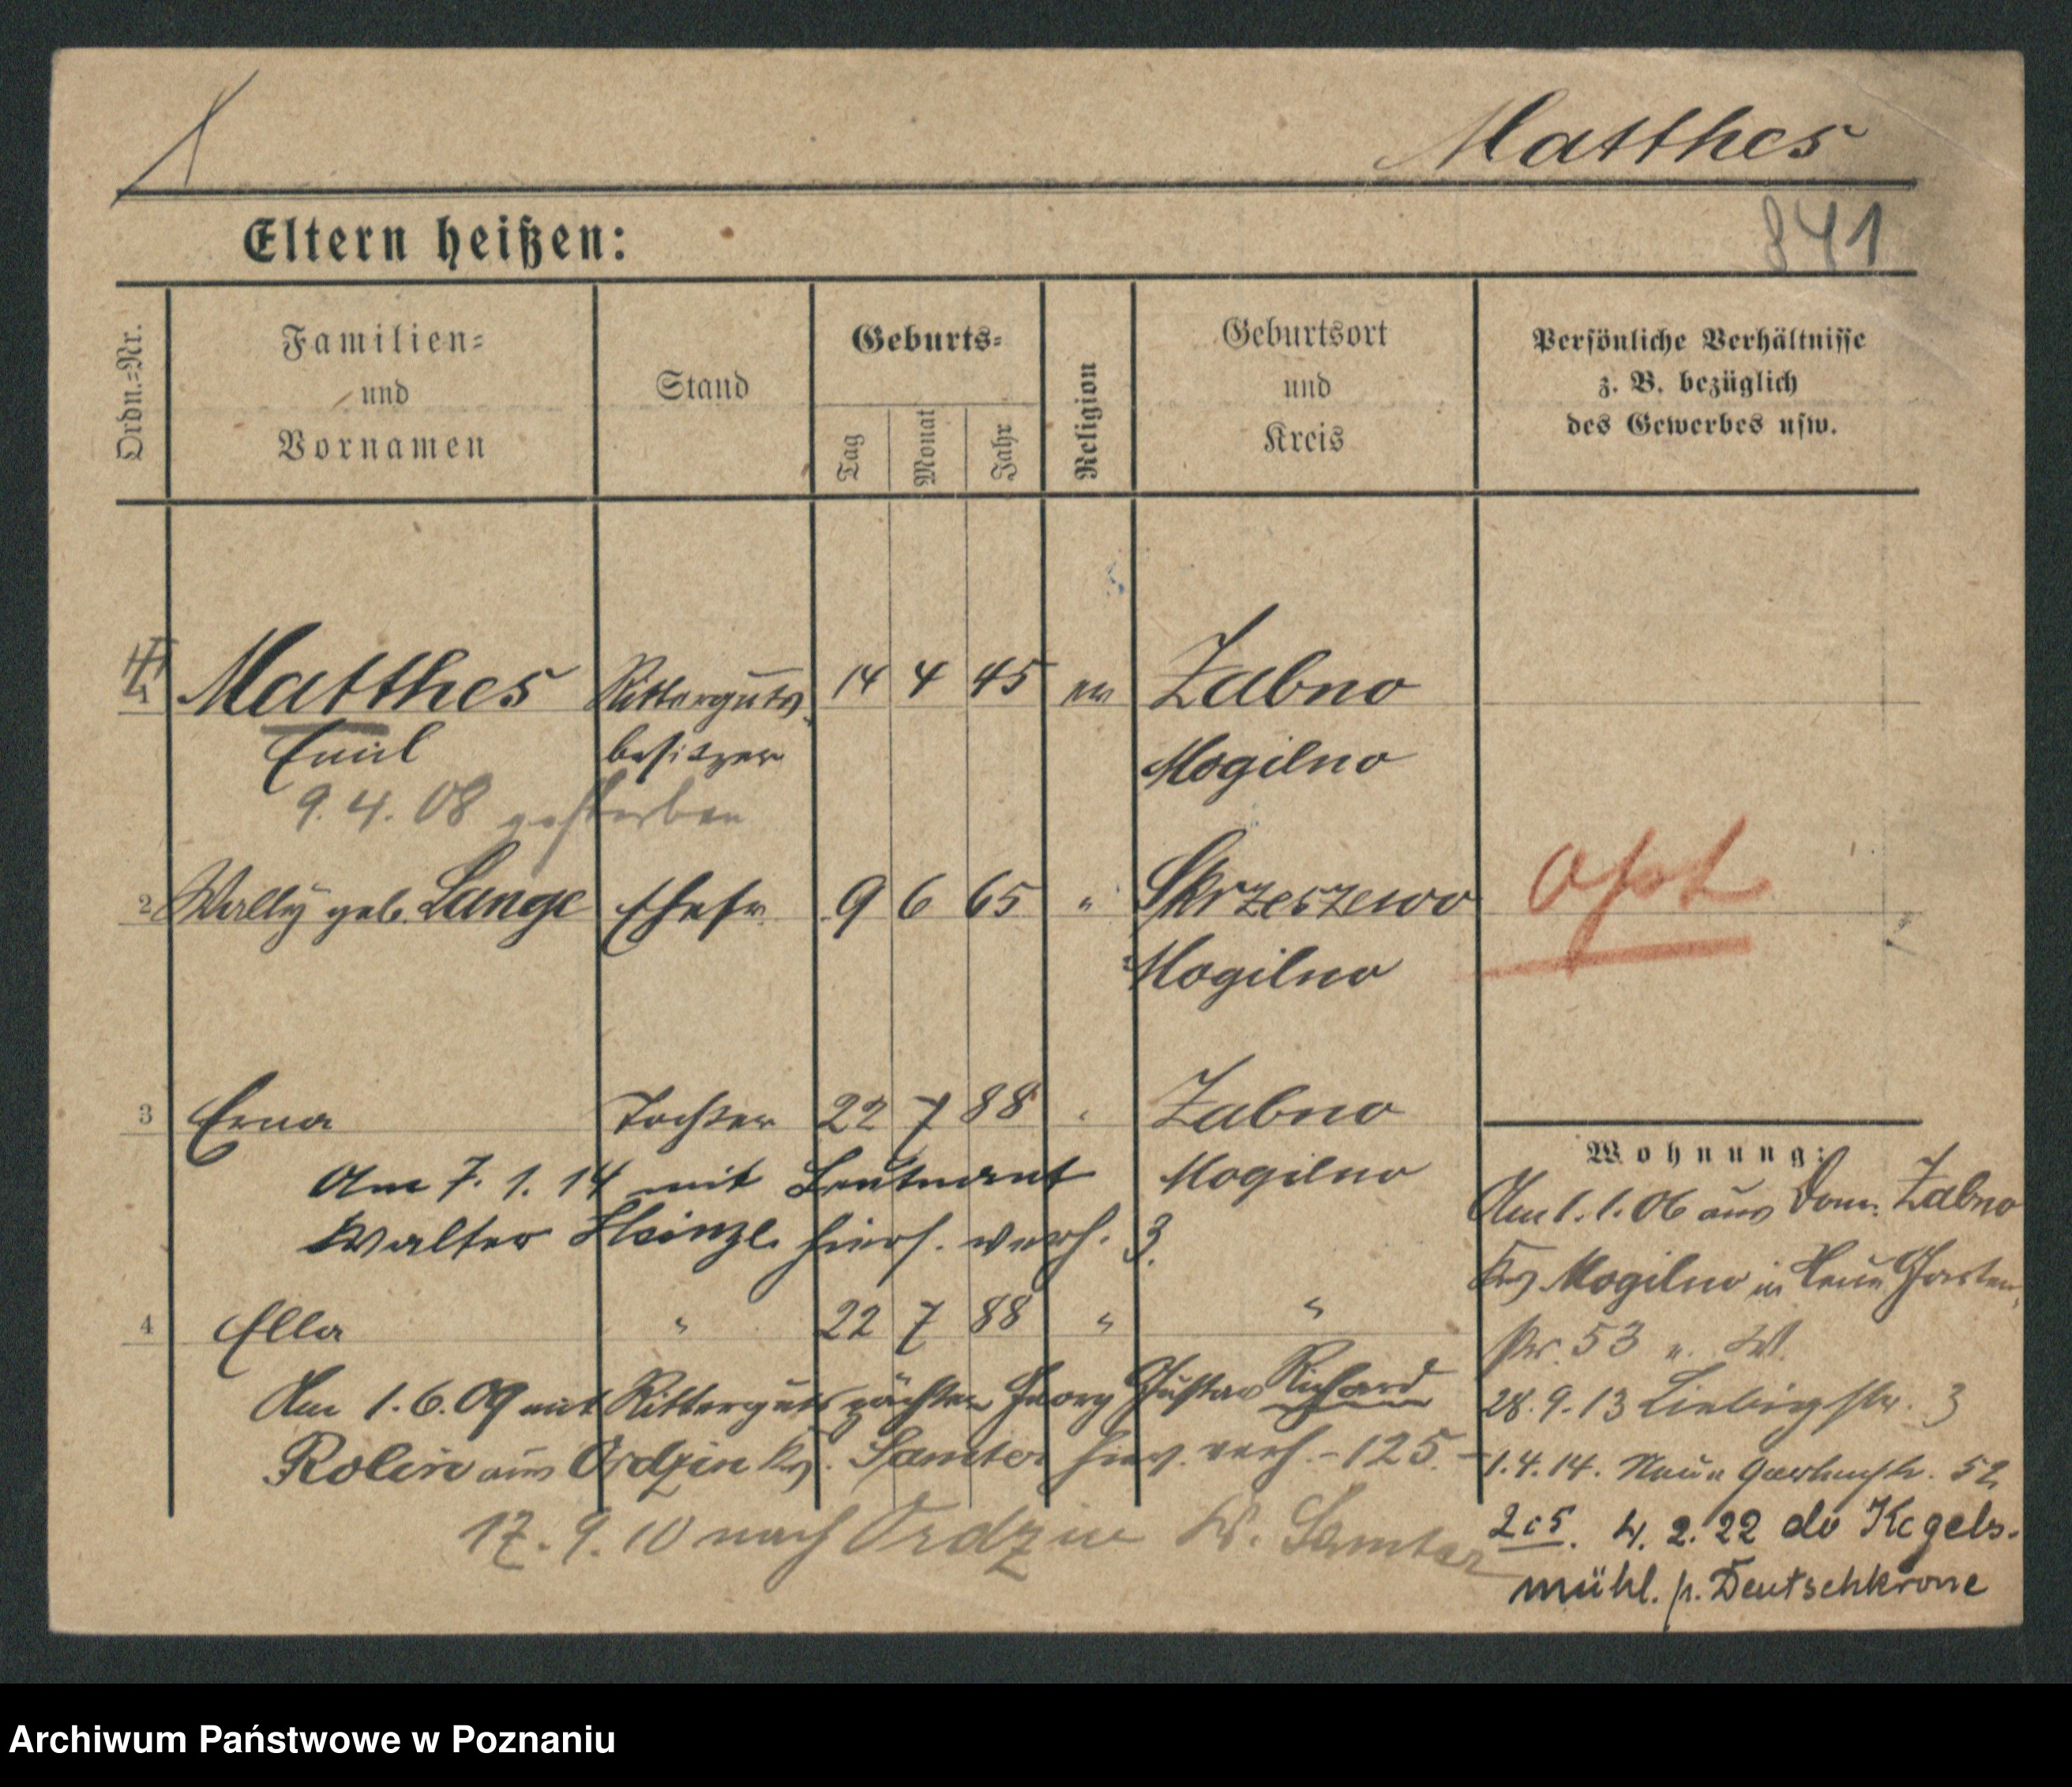 Matthes
841
Eltern heißen:
Ordn.=Nr.
Familien=
und
Vornamen
Stand
Geburts=
Tag
Monat
Jahr
Religion
Geburtsort
und
Kreis
Persönliche Verhältnisse
z. B. bezüglich
des Gewerbes usw.
Matthes Ritterguts 14 4 45 ev Zabno
Emil besitzer Mogilno
9. 4. 08 gestorben
2 Wally geb. Lange Ehefr. 9 6 65 " Skrzeszewo
Mogilno
Opt
3 Erna Tochter 22 7 88 " Zabno
Mogilno
Am 7. 1. 14 mit Leutnant
Walter Heinze hiers. verh. 3.
4 Ella " 22 7 88 " "
Am 1. 6. 09 mit Rittergutspächter Georg Gustav Richard
Rolin aus Ordzin Krs. Samter hiers. verh. - 125. -
17. 9. 10 nach Ordzin Kr. Samter
Wohnung:
Am 1. 1. 06 aus Dom. Zabno
Krs Mogilno in Neue Garten
str. 53 u. W.
28. 9. 13 Liebigstr. 3
1. 4. 14. Neue Gartenstr. 52
4. 2. 22 do Kegels-
mühl. p. Deutschkrone
Archiwum Państwowe w Poznaniu